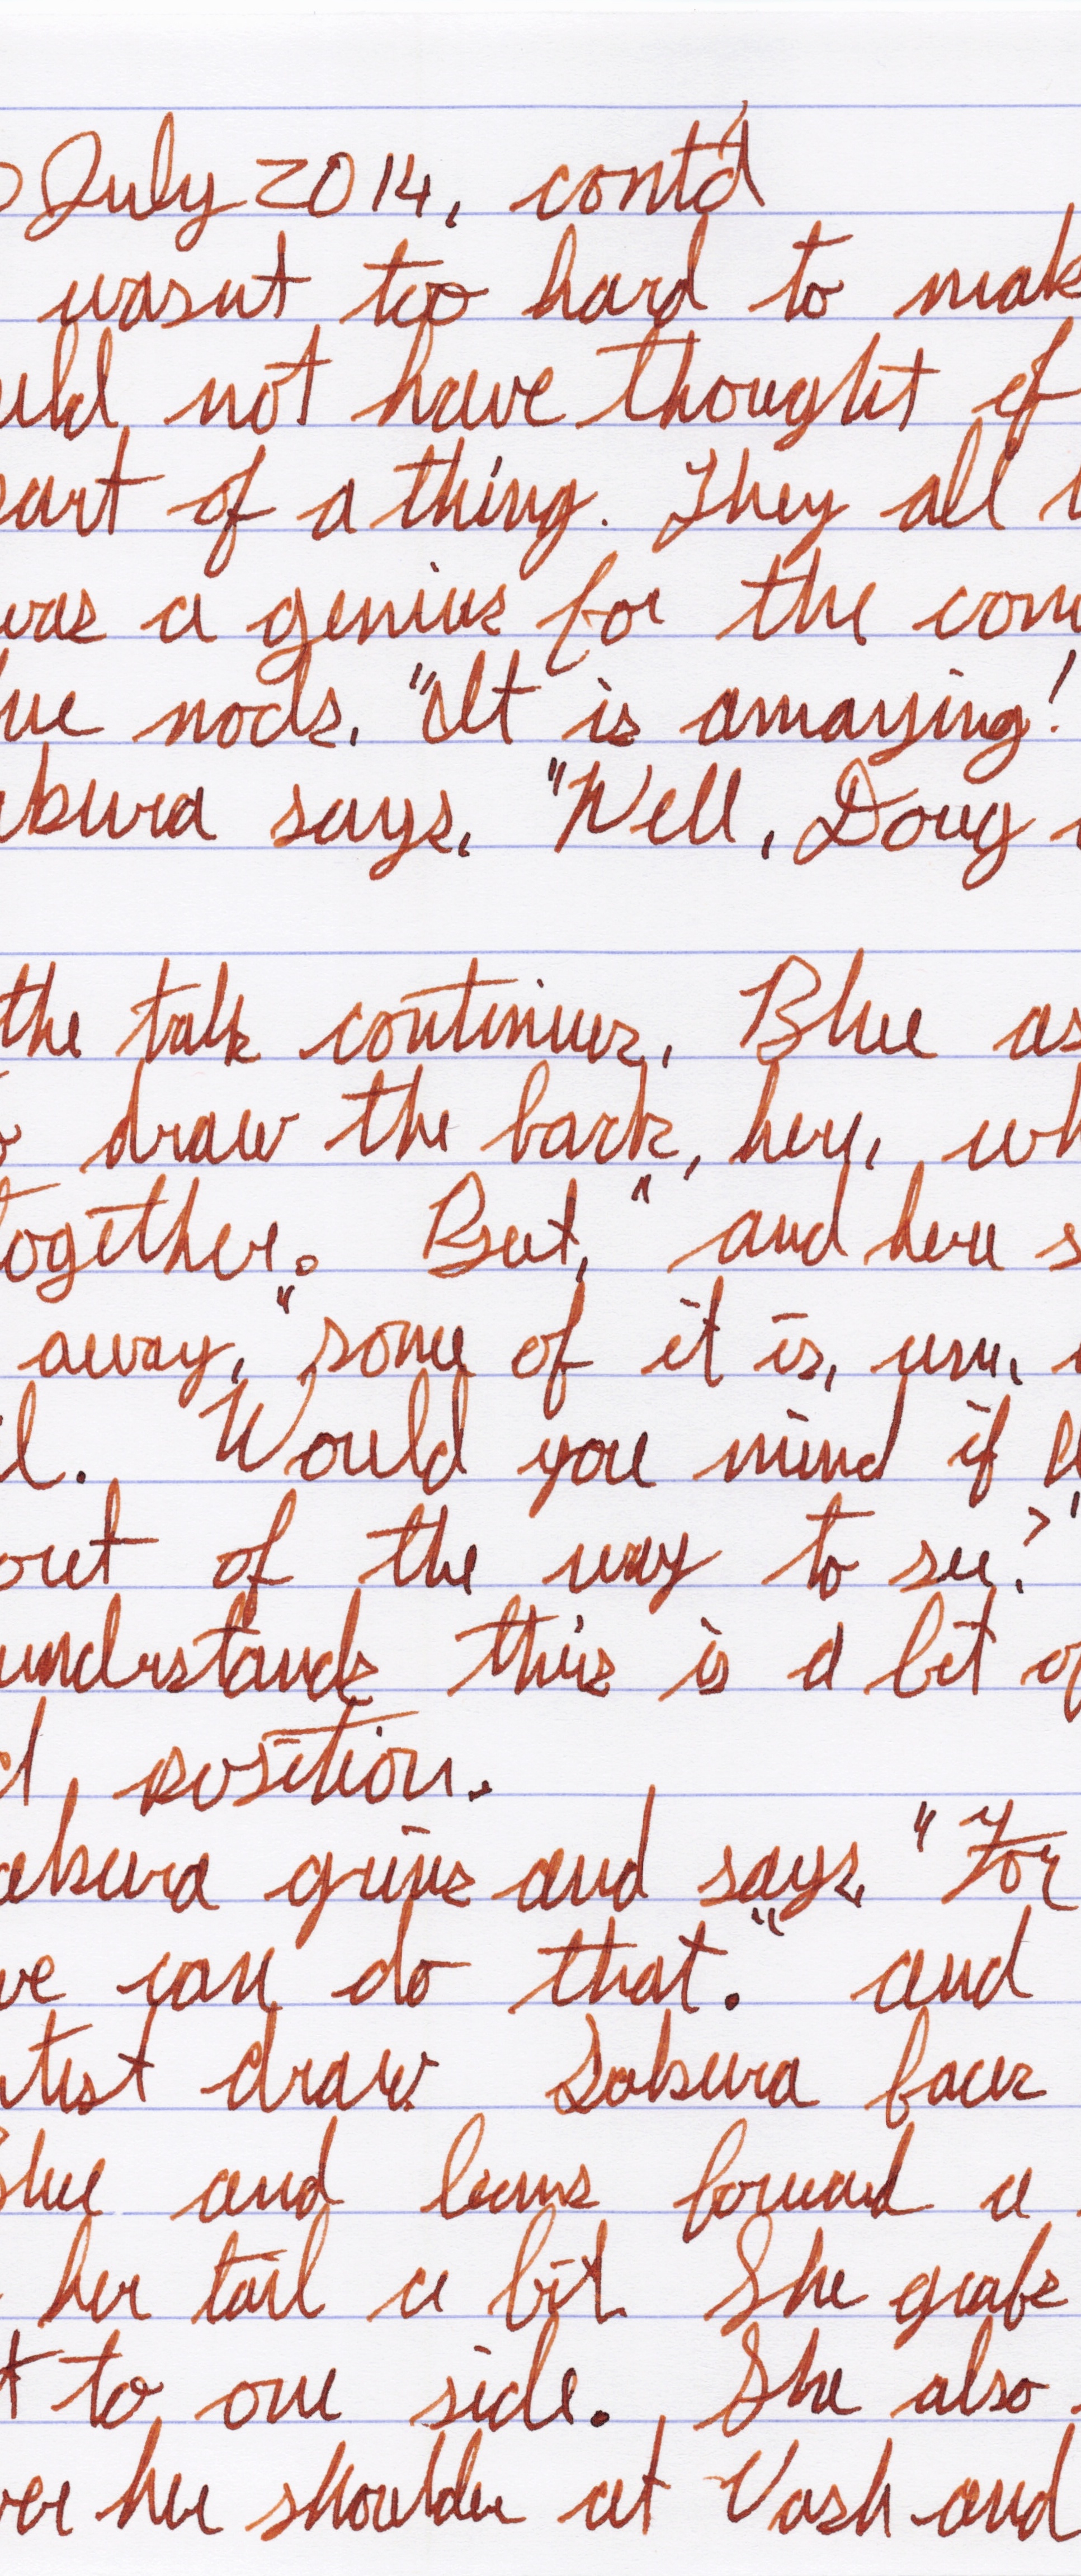 July 2014, cont'd
wasnt too hard to mak
uld not have thought of
part of a thing. They all
was a genius for the com
lue nods. "It is amazing!
akura says, "Well, Doug
the talk continues, Blue as
o draw the back, hey, wh
together. But," and here s
away, "some of it is, um,
il. Would you mind if
out of the way to see?"
understands this is a bit of
d position.
akura grins and says, "For
we can do that." and
utist draw Sakura faces
Blue and leans forward a
her tail a bit. She grabs
t to one side. She also
ver her shoulder at Vash and